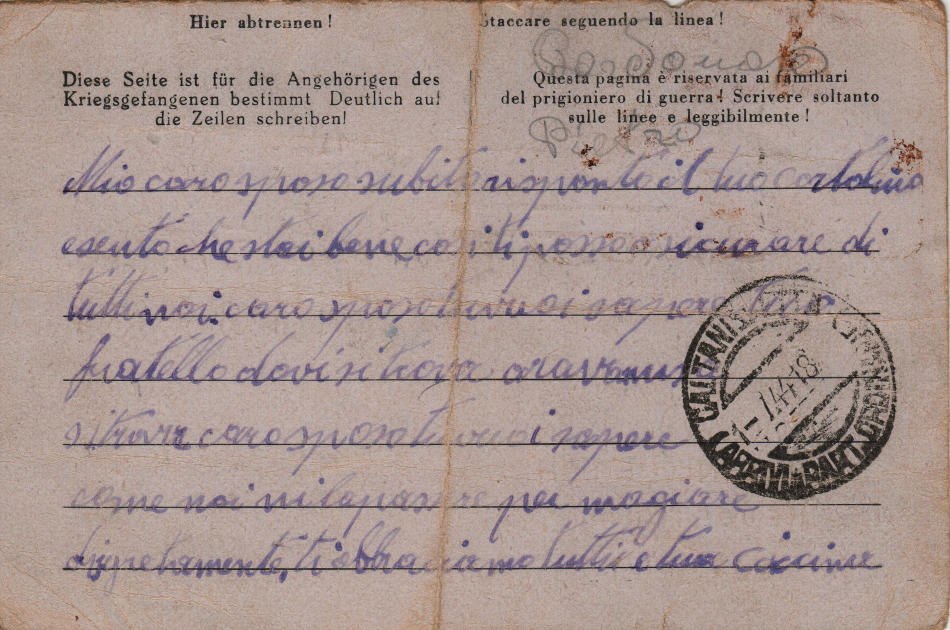 Hier abtrennen!
Staccare seguendo la linea!
Diese Seite ist für die Angehörigen des
Kriegsgefangenen bestimmt Deutlich auf
die Zeilen schreiben!
Questa pagina è riservata ai familiari
del prigioniero di guerra! Scrivere soltanto
sulle linee e leggibilmente!
Pietro
Mio caro sposo subito risponto il tuo cartolina
e sento che stai bene cosi ti posso asicurare di
tutti noi. caro sposo tu vuoi sapere tuo
fratello dovi si trova ora
si trova caro sposo tu vuoi sapere
come noi ni la pasare per magiare
dispretamente, ti abbraciamo tutti e tua
CALTANISSETTA
1-7.44.18
ARRIVI E PART. ORDIN.